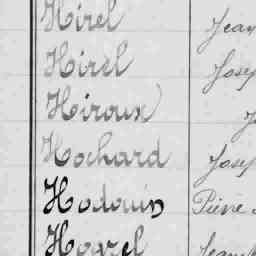 Hirel Jean
Hirel Josep
Hiroux J
Hochard Josep
Hodouin Pierre
Hogrel Jean